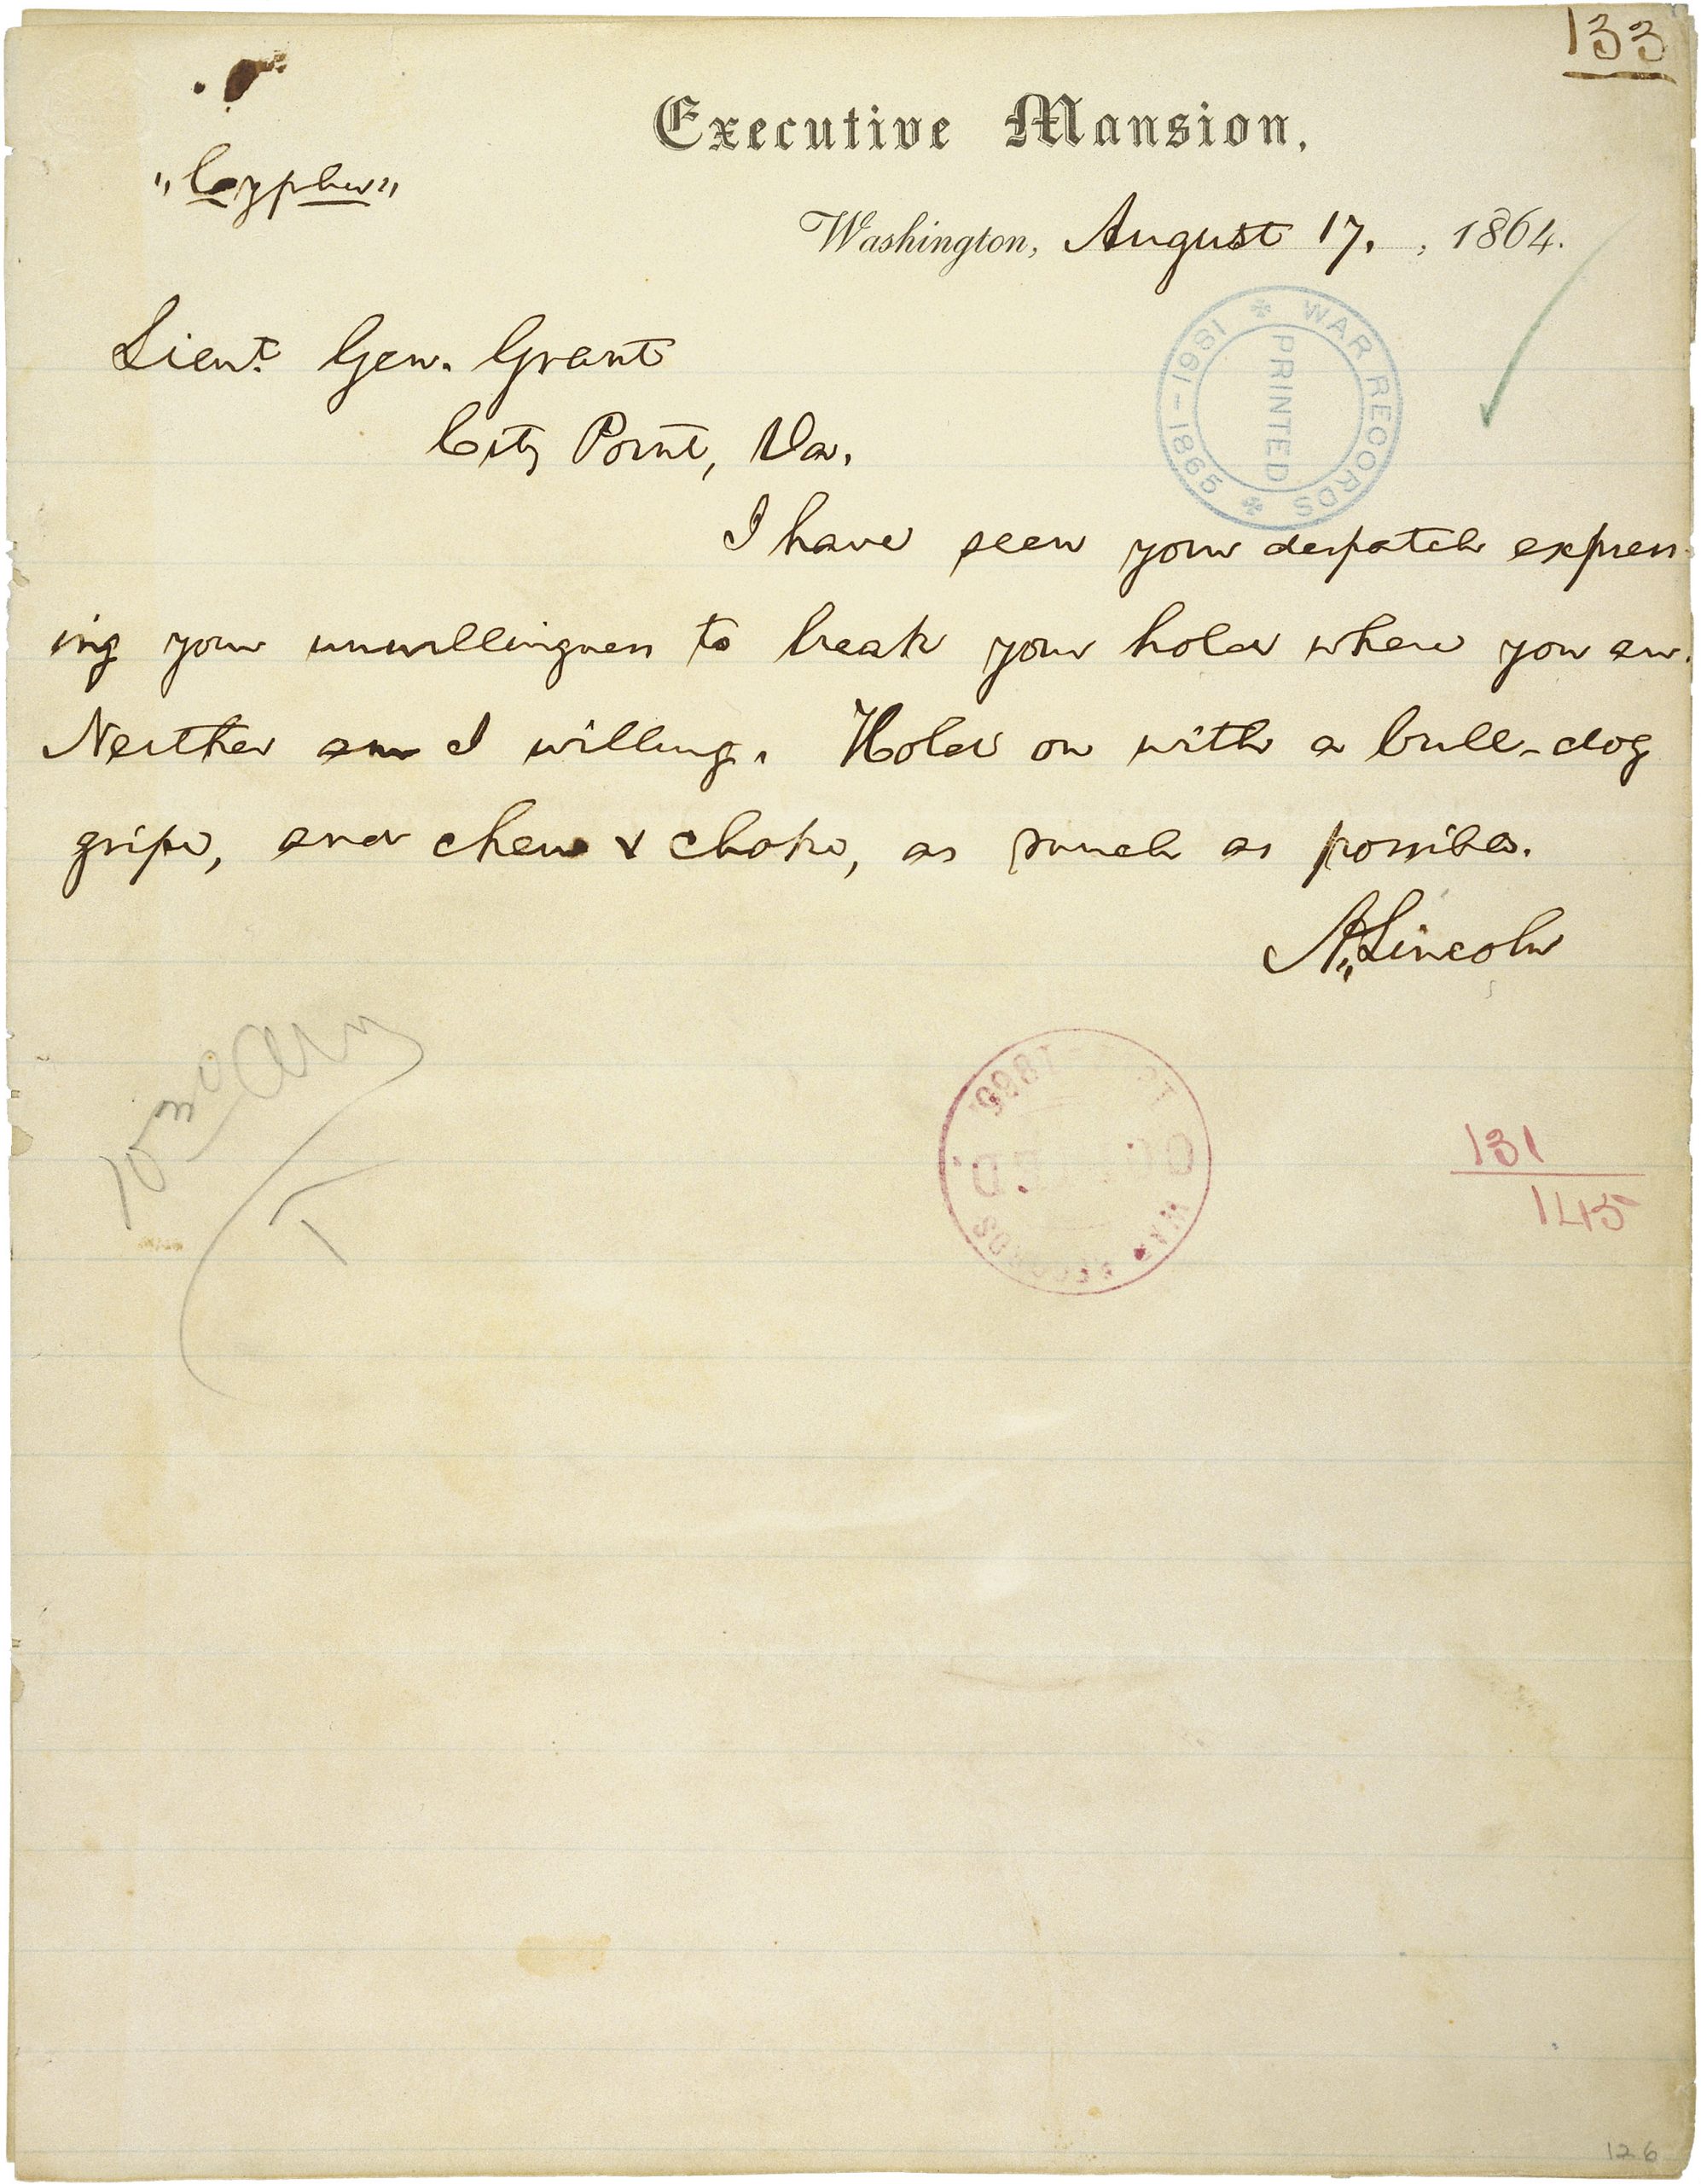 133
Executive Mansion,
"Cypher"
Washington, August 17. , 1864.
Lieut. Gen. Grant
City Point, Va.
WAR RECORDS
1861-1865
PRINTED
I have seen your despatch express-
ing your unwillingness to break your hold where you are.
Neither am I willing. Hold on with a bull-dog
gripe, and chew & choke, as much as possible.
A. Lincoln
10
1866
131
145
126